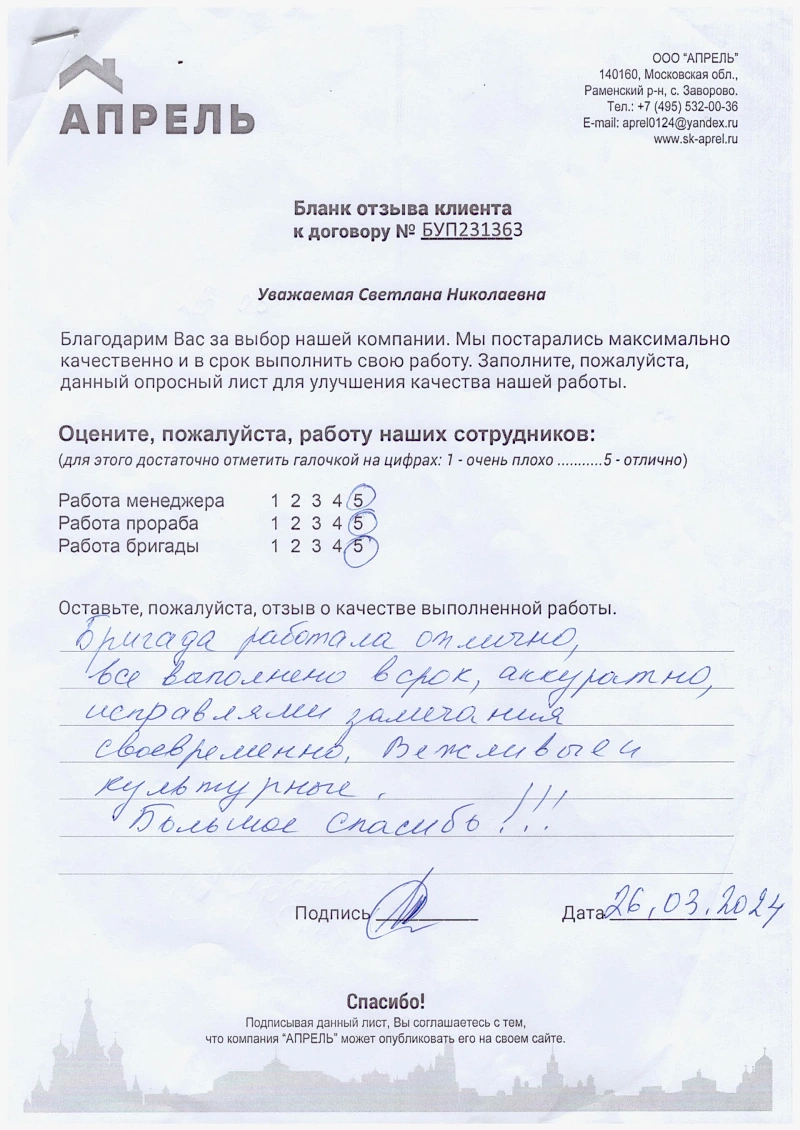 АПРЕЛЬ
ООО "АПРЕЛЬ"
140160, Московская обл.,
Раменский р-н, с. Заворово.
Тел.: +7 (495) 532-00-36
E-mail: aprel0124@yandex.ru
www.sk-aprel.ru
Бланк отзыва клиента
к договору № БУП231363
Уважаемая Светлана Николаевна
Благодарим Вас за выбор нашей компании. Мы постарались максимально
качественно и в срок выполнить свою работу. Заполните, пожалуйста,
данный опросный лист для улучшения качества нашей работы.
Оцените, пожалуйста, работу наших сотрудников:
(для этого достаточно отметить галочкой на цифрах: 1 - очень плохо ...........5 - отлично)
Работа менеджера 1 2 3 4 5
Работа прораба 1 2 3 4 5
Работа бригады 1 2 3 4 5
Оставьте, пожалуйста, отзыв о качестве выполненной работы.
Бригада работала отлично,
все ваполнено в срок, аккуратно,
исправлями замечания
своевременно. Вежливые и
культурные.
Большое спасибо!!!
Подпись
Дата 26.03.2024
Спасибо!
Подписывая данный лист, Вы соглашаетесь с тем,
что компания "АПРЕЛЬ" может опубликовать его на своем сайте.